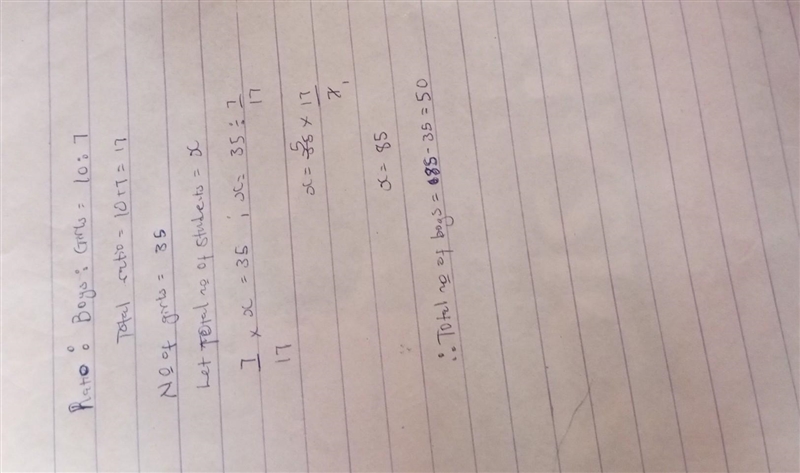 Ratio : Boys : Girls = 10 : 7
Total ratio = 10+7 = 17
No of girls = 35
Let Total no of Students = x
7/17 × x = 35 ; x = 35 ÷ 7/17
x = 35 5 × 17/7 1
x = 85
∴ Total no of boys = 85 - 35 = 50